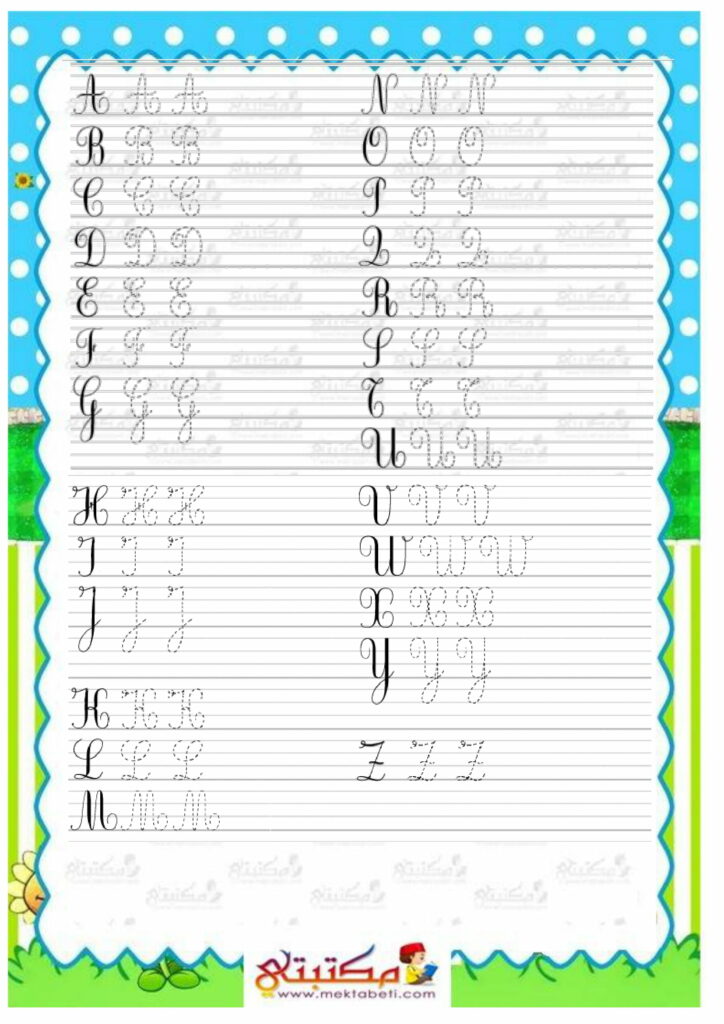 A A A
B B B
C C C
D D D
E E E
F F F
G G G
H H H
I I I
J J J
K K K
L L L
M M M
N N N
O O O
P P P
Q Q Q
R R R
S S S
T T T
U U U
V V V
W W W
X X X
Y Y Y
Z Z Z
مكتبتي
www.mektabeti.com